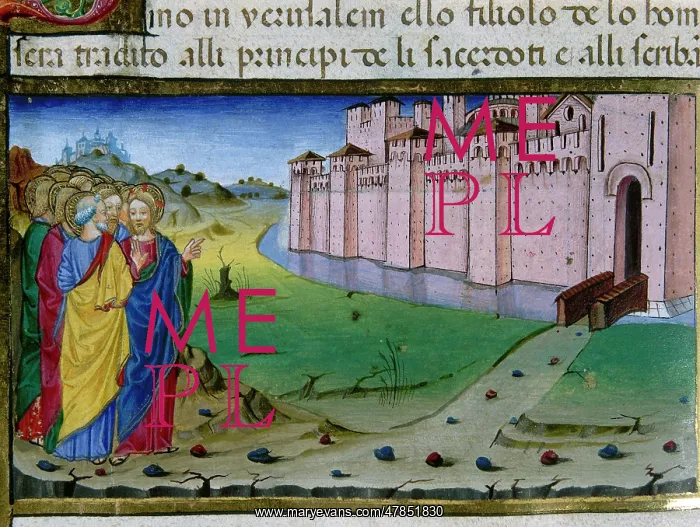 ino in yerusalem ello filiolo de lo hom
sera tradito alli principi de li sacerdoti e alli scriba
ME
PL
ME
PL
www.maryevans.com/47851830